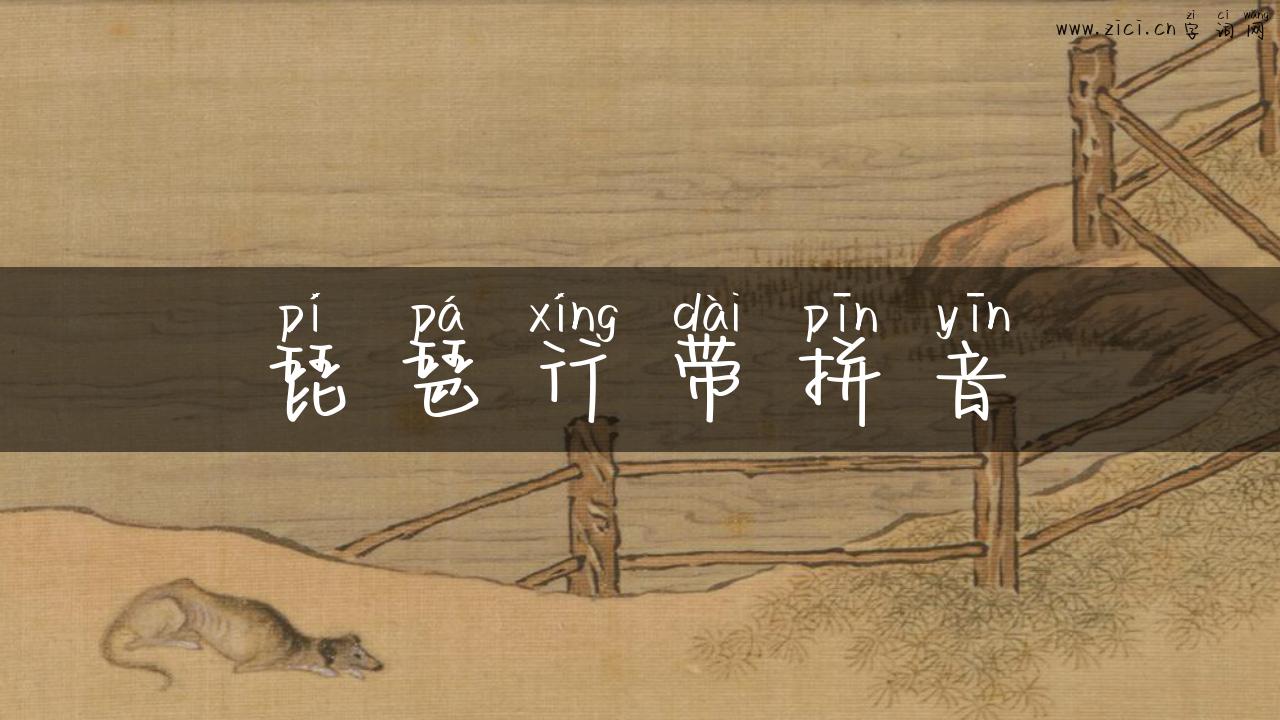 zì cí wǎng
www.zici.cn 字词网
pí pá xíng dài pīn yīn
琵琶行带拼音